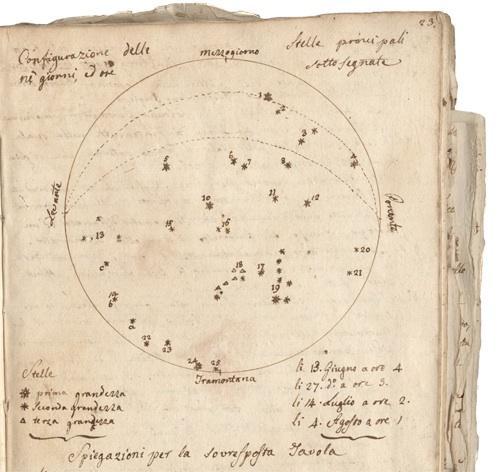 23.
Configurazione delle
ne' giorni, ed ore
mezzogiorno
Stelle principali
sottosegnate
1
2
3
4
5
6
7
8
Levante
Ponente
10
11
12
13
15
16
17
18
19
20
21
c
b
a
22
23
24
25
Tramontana
Stelle
prima grandezza
Seconda grandezza
terza grandezza
li 13. Giugno a ore 4
li 27. do. a ore 3.
li 14. Luglio a ore 2.
li 4. Agosto a ore 1
Spiegazioni per la sovresposta Tavola